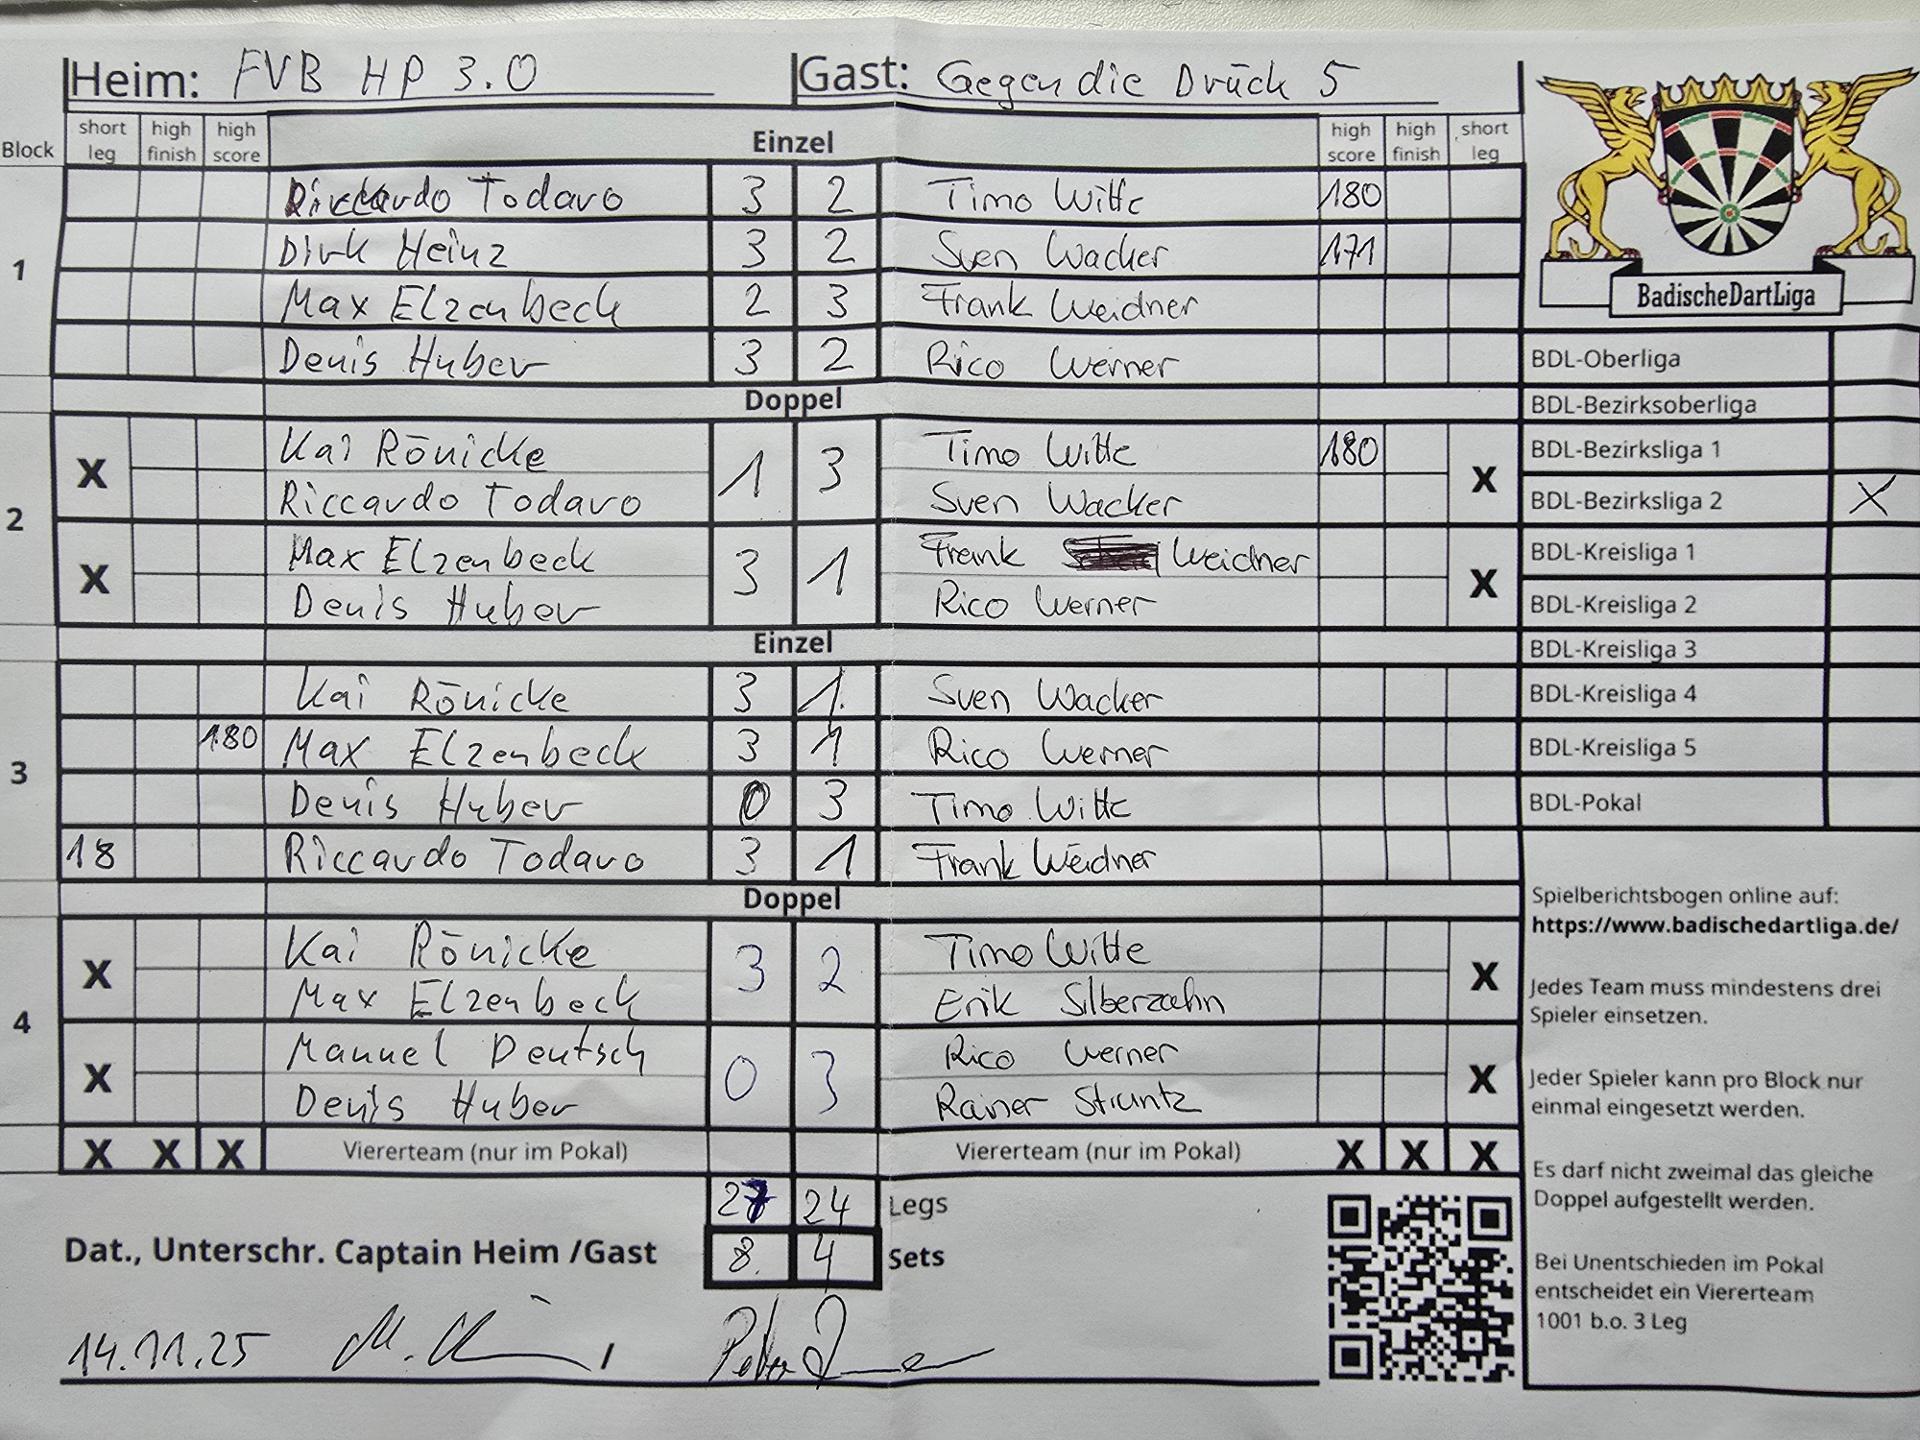 Heim: FVB HP 3.0 Gast: Gegen die Drück 5
Block short leg high finish high score Einzel high score high finish short leg
1
Riccardo Todaro 3 2 Timo Witte 180
Dirk Heinz 3 2 Sven Wacker 171
Max Elzenbeck 2 3 Frank Weidner
Denis Huber 3 2 Rico Werner
Doppel
2
X Kai Rönicke 1 3 Timo Witte 180 X
Riccardo Todaro Sven Wacker
X Max Elzenbeck 3 1 Frank Weidner X
Denis Huber Rico Werner
Einzel
3
Kai Rönicke 3 1 Sven Wacker
180 Max Elzenbeck 3 1 Rico Werner
Denis Huber 0 3 Timo Witte
18 Riccardo Todaro 3 1 Frank Weidner
Doppel
4
X Kai Rönicke 3 2 Timo Witte X
Max Elzenbeck Erik Silberzahn
X Manuel Deutsch 0 3 Rico Werner X
Denis Huber Rainer Struntz
X X X Viererteam (nur im Pokal) Viererteam (nur im Pokal) X X X
27 24 Legs
Dat., Unterschr. Captain Heim /Gast 8 4 Sets
14.11.25 /
BadischeDartLiga
BDL-Oberliga
BDL-Bezirksoberliga
BDL-Bezirksliga 1
BDL-Bezirksliga 2 X
BDL-Kreisliga 1
BDL-Kreisliga 2
BDL-Kreisliga 3
BDL-Kreisliga 4
BDL-Kreisliga 5
BDL-Pokal
Spielberichtsbogen online auf:
https://www.badischedartliga.de/
Jedes Team muss mindestens drei
Spieler einsetzen.
Jeder Spieler kann pro Block nur
einmal eingesetzt werden.
Es darf nicht zweimal das gleiche
Doppel aufgestellt werden.
Bei Unentschieden im Pokal
entscheidet ein Viererteam
1001 b.o. 3 Leg